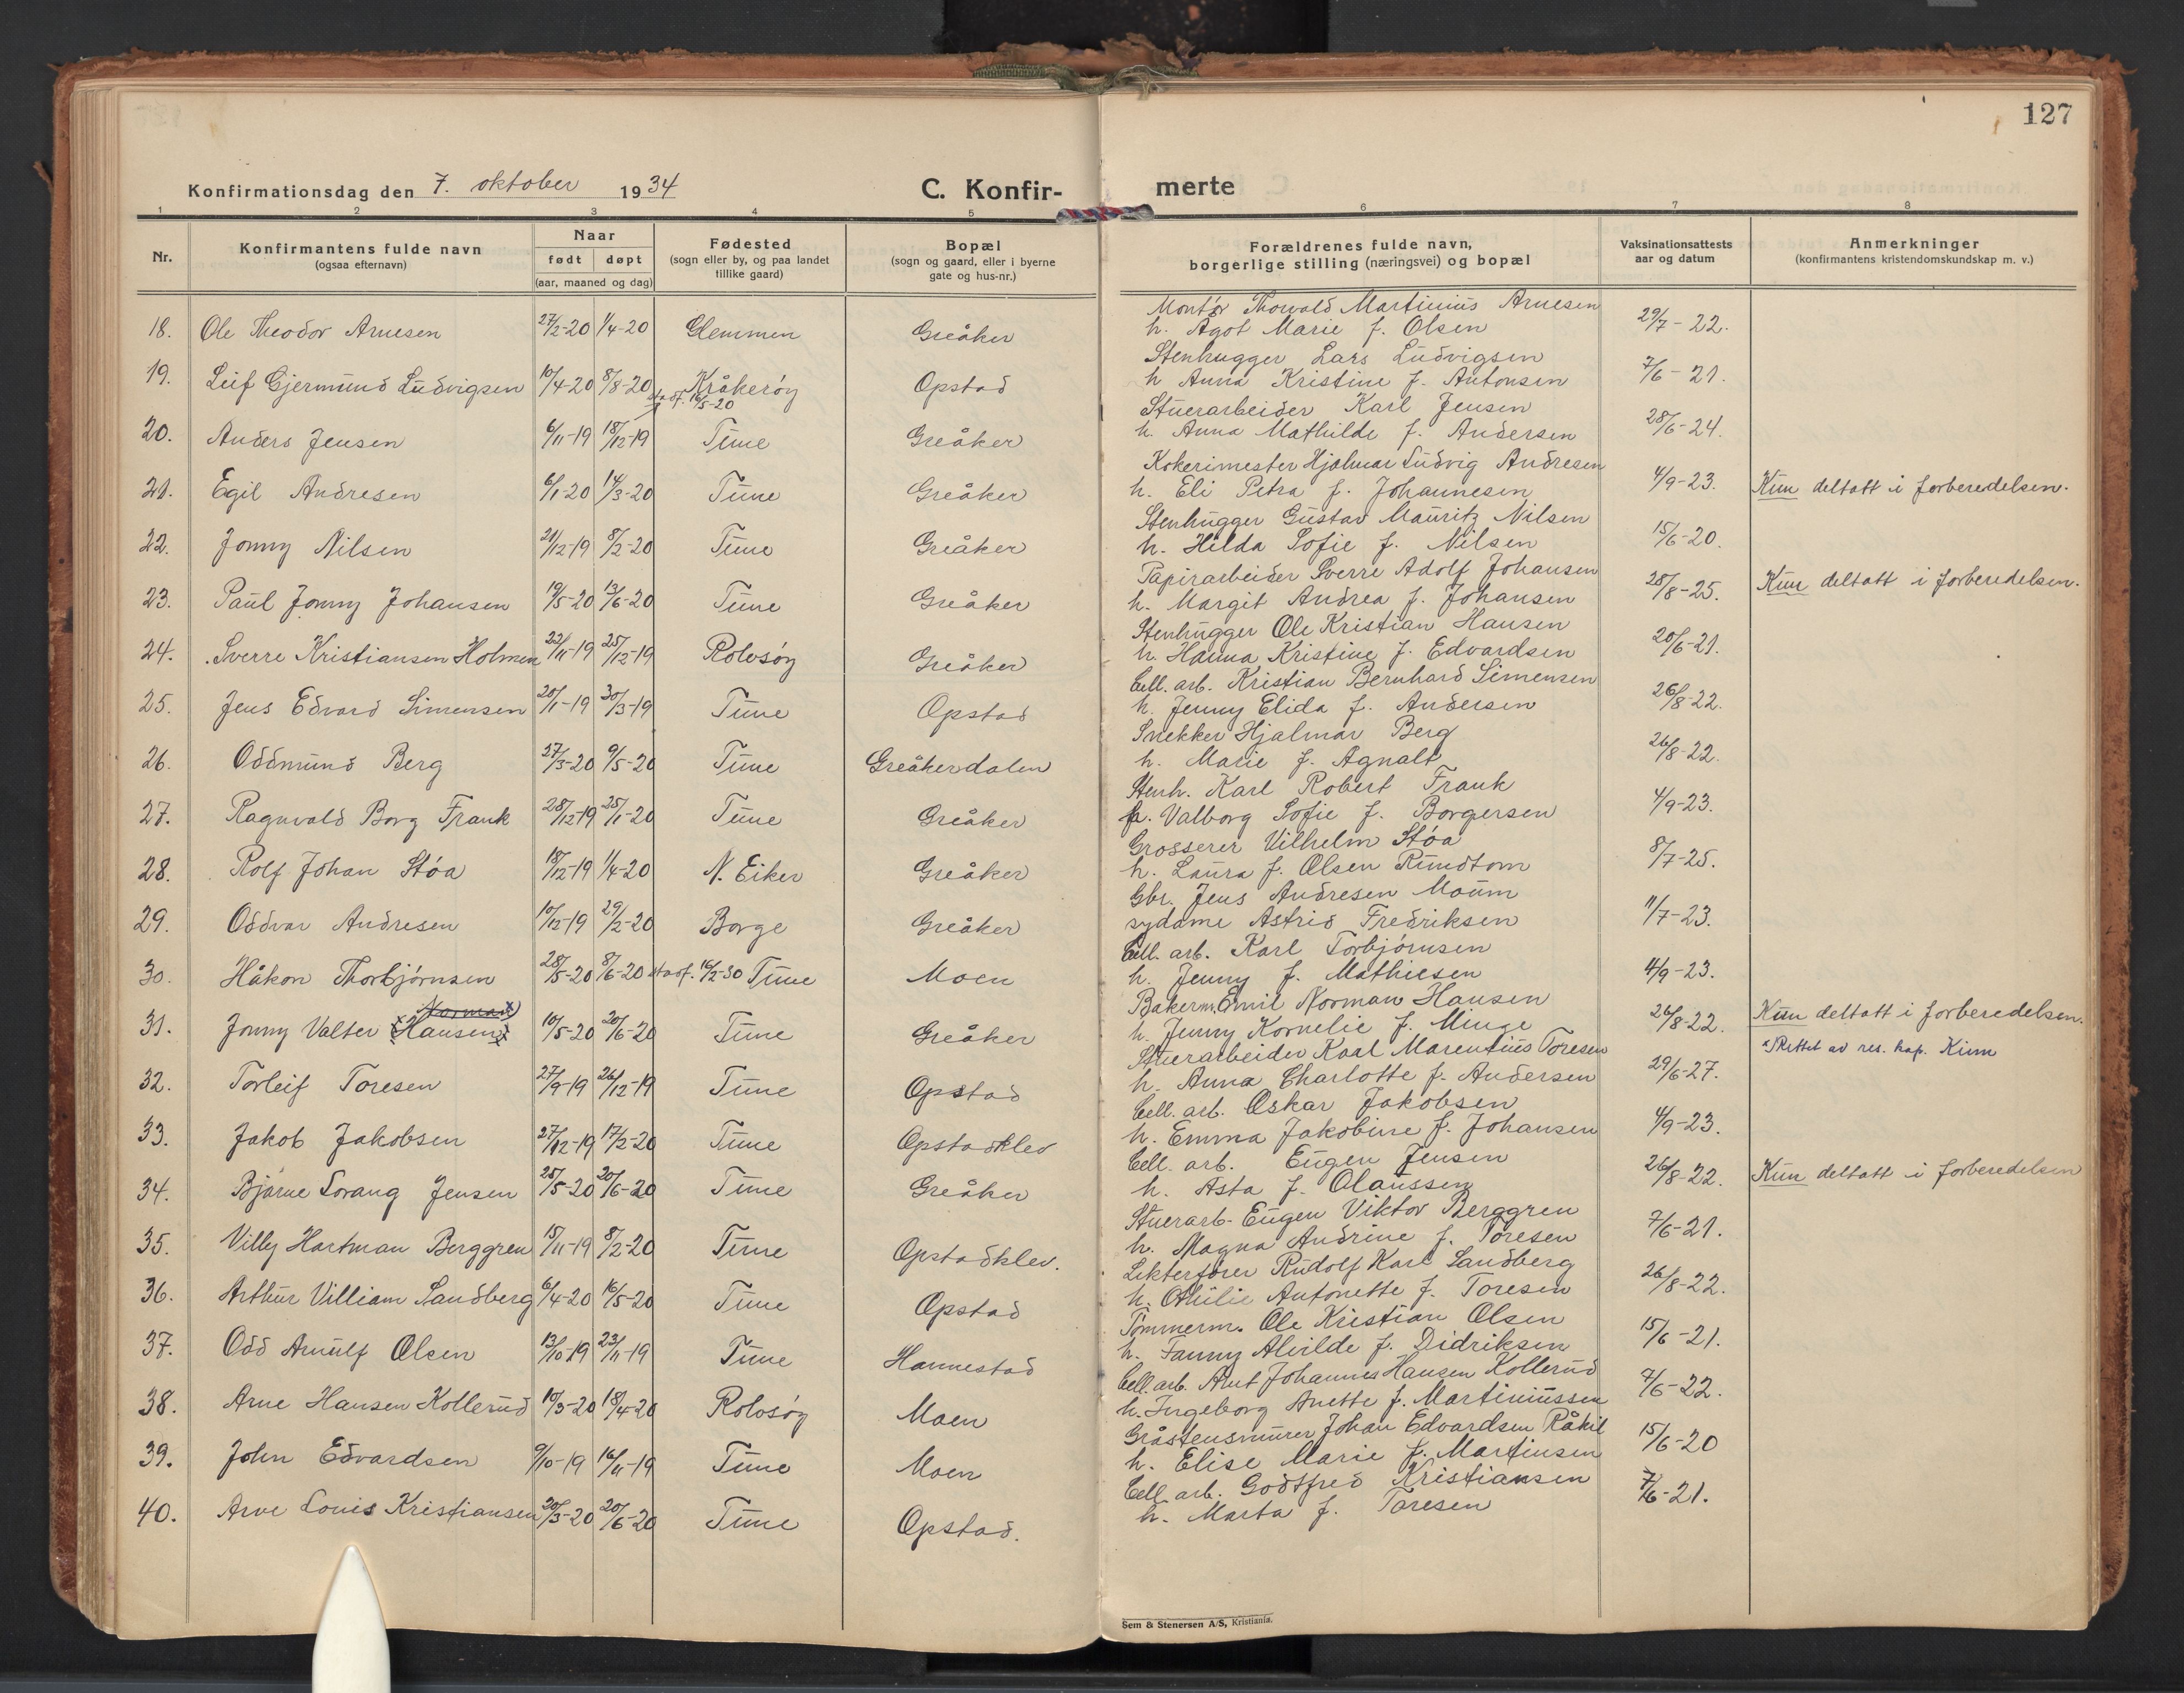 127
Konfirmationsdag den 7. oktober 1934
C. Konfir-merte
1 2 3 4 5 6 7 8
Nr.
Konfirmantens fulde navn
(ogsaa efternavn)
Naar
født døpt
(aar, maaned og dag)
Fødested
(sogn eller by, og paa landet
tillike gaard)
Bopæl
(sogn og gaard, eller i byerne
gate og hus-nr.)
Forældrenes fulde navn,
borgerlige stilling (næringsvei) og bopæl
Vaksinationsattests
aar og datum
Anmerkninger
(konfirmantens kristendomskundskap m. v.)
Montør Thorvald Martinius Arnesen
18. Ole Theodor Arnesen 27/2-20 1/4-20 Glemmen Greåker h. Ågot Marie f. Olsen 29/7-22.
Stenhugger Lars Ludvigsen
19. Leif Gjermund Ludvigsen 10/4-20 8/8-20 Kråkerøy Opstad h Anna Kristine f. Antonsen 7/6-21.
stadf. 16/5-20
Stuerarbeider Karl Jensen
20. Anders Jensen 6/11-19 18/12-19 Tune Greåker h. Anna Mathilde f. Andersen 28/6-24.
Kokerimester Hjalmar Ludvig Andresen
21. Egil Andresen 6/1-20 14/3-20 Tune Greåker h. Eli Petra f. Johannesen 4/9-23. Kun deltatt i forberedelsen.
Stenhugger Gustav Mauritz Nilsen
22. Jonny Nilsen 21/12-19 8/2-20 Tune Greåker h. Hilda Sofie f. Nilsen 15/6-20.
Papirarbeider Sverre Adolf Johansen
23. Paul Jonny Johansen 19/5-20 13/6-20 Tune Greåker h. Margit Andrea f. Johansen 28/8-25. Kun deltatt i forberedelsen.
Stenhugger Ole Kristian Hansen
24. Sverre Kristiansen Holmen 22/11-19 25/12-19 Rolvsøy Greåker h. Hanna Kristine f. Edvardsen 20/6-21.
Cell. arb. Kristian Bernhard Simensen
25. Jens Edvard Simensen 20/1-19 30/3-19 Tune Opstad h. Jenny Elida f. Andersen 26/8-22.
Snekker Hjalmar Berg
26. Oddmund Berg 27/3-20 9/5-20 Tune Greåkerdalen h. Marie f. Agnalt 26/8-22.
Stenh. Karl Robert Frank
27. Ragnvald Borg Frank 28/12-19 25/1-20 Tune Greåker h. Valborg Sofie f. Borgersen 4/9-23.
Grosserer Vilhelm Støa
28. Rolf Johan Støa 18/12-19 1/4-20 N. Eiker Greåker h. Laura f. Olsen Rundtom 8/7-25.
Gbr. Jens Andresen Moum
29. Oddvar Andresen 10/12-19 29/2-20 Borge Greåker sydame Astrid Fredriksen 11/7-23.
Cell. arb. Karl Torbjørnsen
30. Håkon Thorbjørnsen 28/5-20 8/6-20 stadf. 16/2-30 Tune Moen h. Jenny f. Mathiesen 4/9-23.
Bakerm. Emil Norman Hansen
Norman x)
31. Jonny Valter Hansen 10/5-20 20/6-20 Tune Greåker h. Jenny Kornelie f. Minge 26/8-22. Kun deltatt i forberedelsen.
x) Rettet av res. kap. Kinn
Stuerarbeider Karl Marentius Toresen
32. Torleif Toresen 27/9-19 26/12-19 Tune Opstad h. Anna Charlotte f. Andersen 29/6-27.
Cell. arb. Oskar Jakobsen
33. Jakob Jakobsen 27/12-19 17/2-20 Tune Opstadklev h. Emma Jakobine f. Johansen 4/9-23.
Cell. arb. Eugen Jensen
34. Bjarne Lorang Jensen 25/5-20 20/6-20 Tune Greåker h. Asta f. Olaussen 26/8-22. Kun deltatt i forberedelsen
Stuerarb. Eugen Viktor Berggren
35. Villy Hartman Berggren 15/11-19 8/2-20 Tune Opstadklev. h. Magna Andrine f. Toresen 7/6-21.
Lekterfører Rudolf Karl Sandberg
36. Arthur Villiam Sandberg 6/4-20 16/5-20 Tune Opstad h. Othilie Antonette f. Toresen 26/8-22.
Tømmerm. Ole Kristian Olsen
37. Odd Arnulf Olsen 13/10-19 23/11-19 Tune Hannestad h. Fanny Alvilde f. Didriksen 15/6-21.
Cell. arb. Anut Johannes Hansen Kollerud
38. Arne Hansen Kollerud 10/3-20 18/4-20 Rolvsøy Moen h. Ingeborg Anette f. Martiniussen 7/6-22.
Gråstensmurer Johan Edvardsen Råkil
39. John Edvardsen 9/10-19 16/11-19 Tune Moen h. Elise Marie f. Martinsen 15/6-20
Cell. arb. Godtfred Kristiansen
40. Arve Louis Kristiansen 20/3-20 20/6-20 Tune Opstad. h. Marta f. Toresen 7/6-21.
Sem & Stenersen A/S, Kristiania.